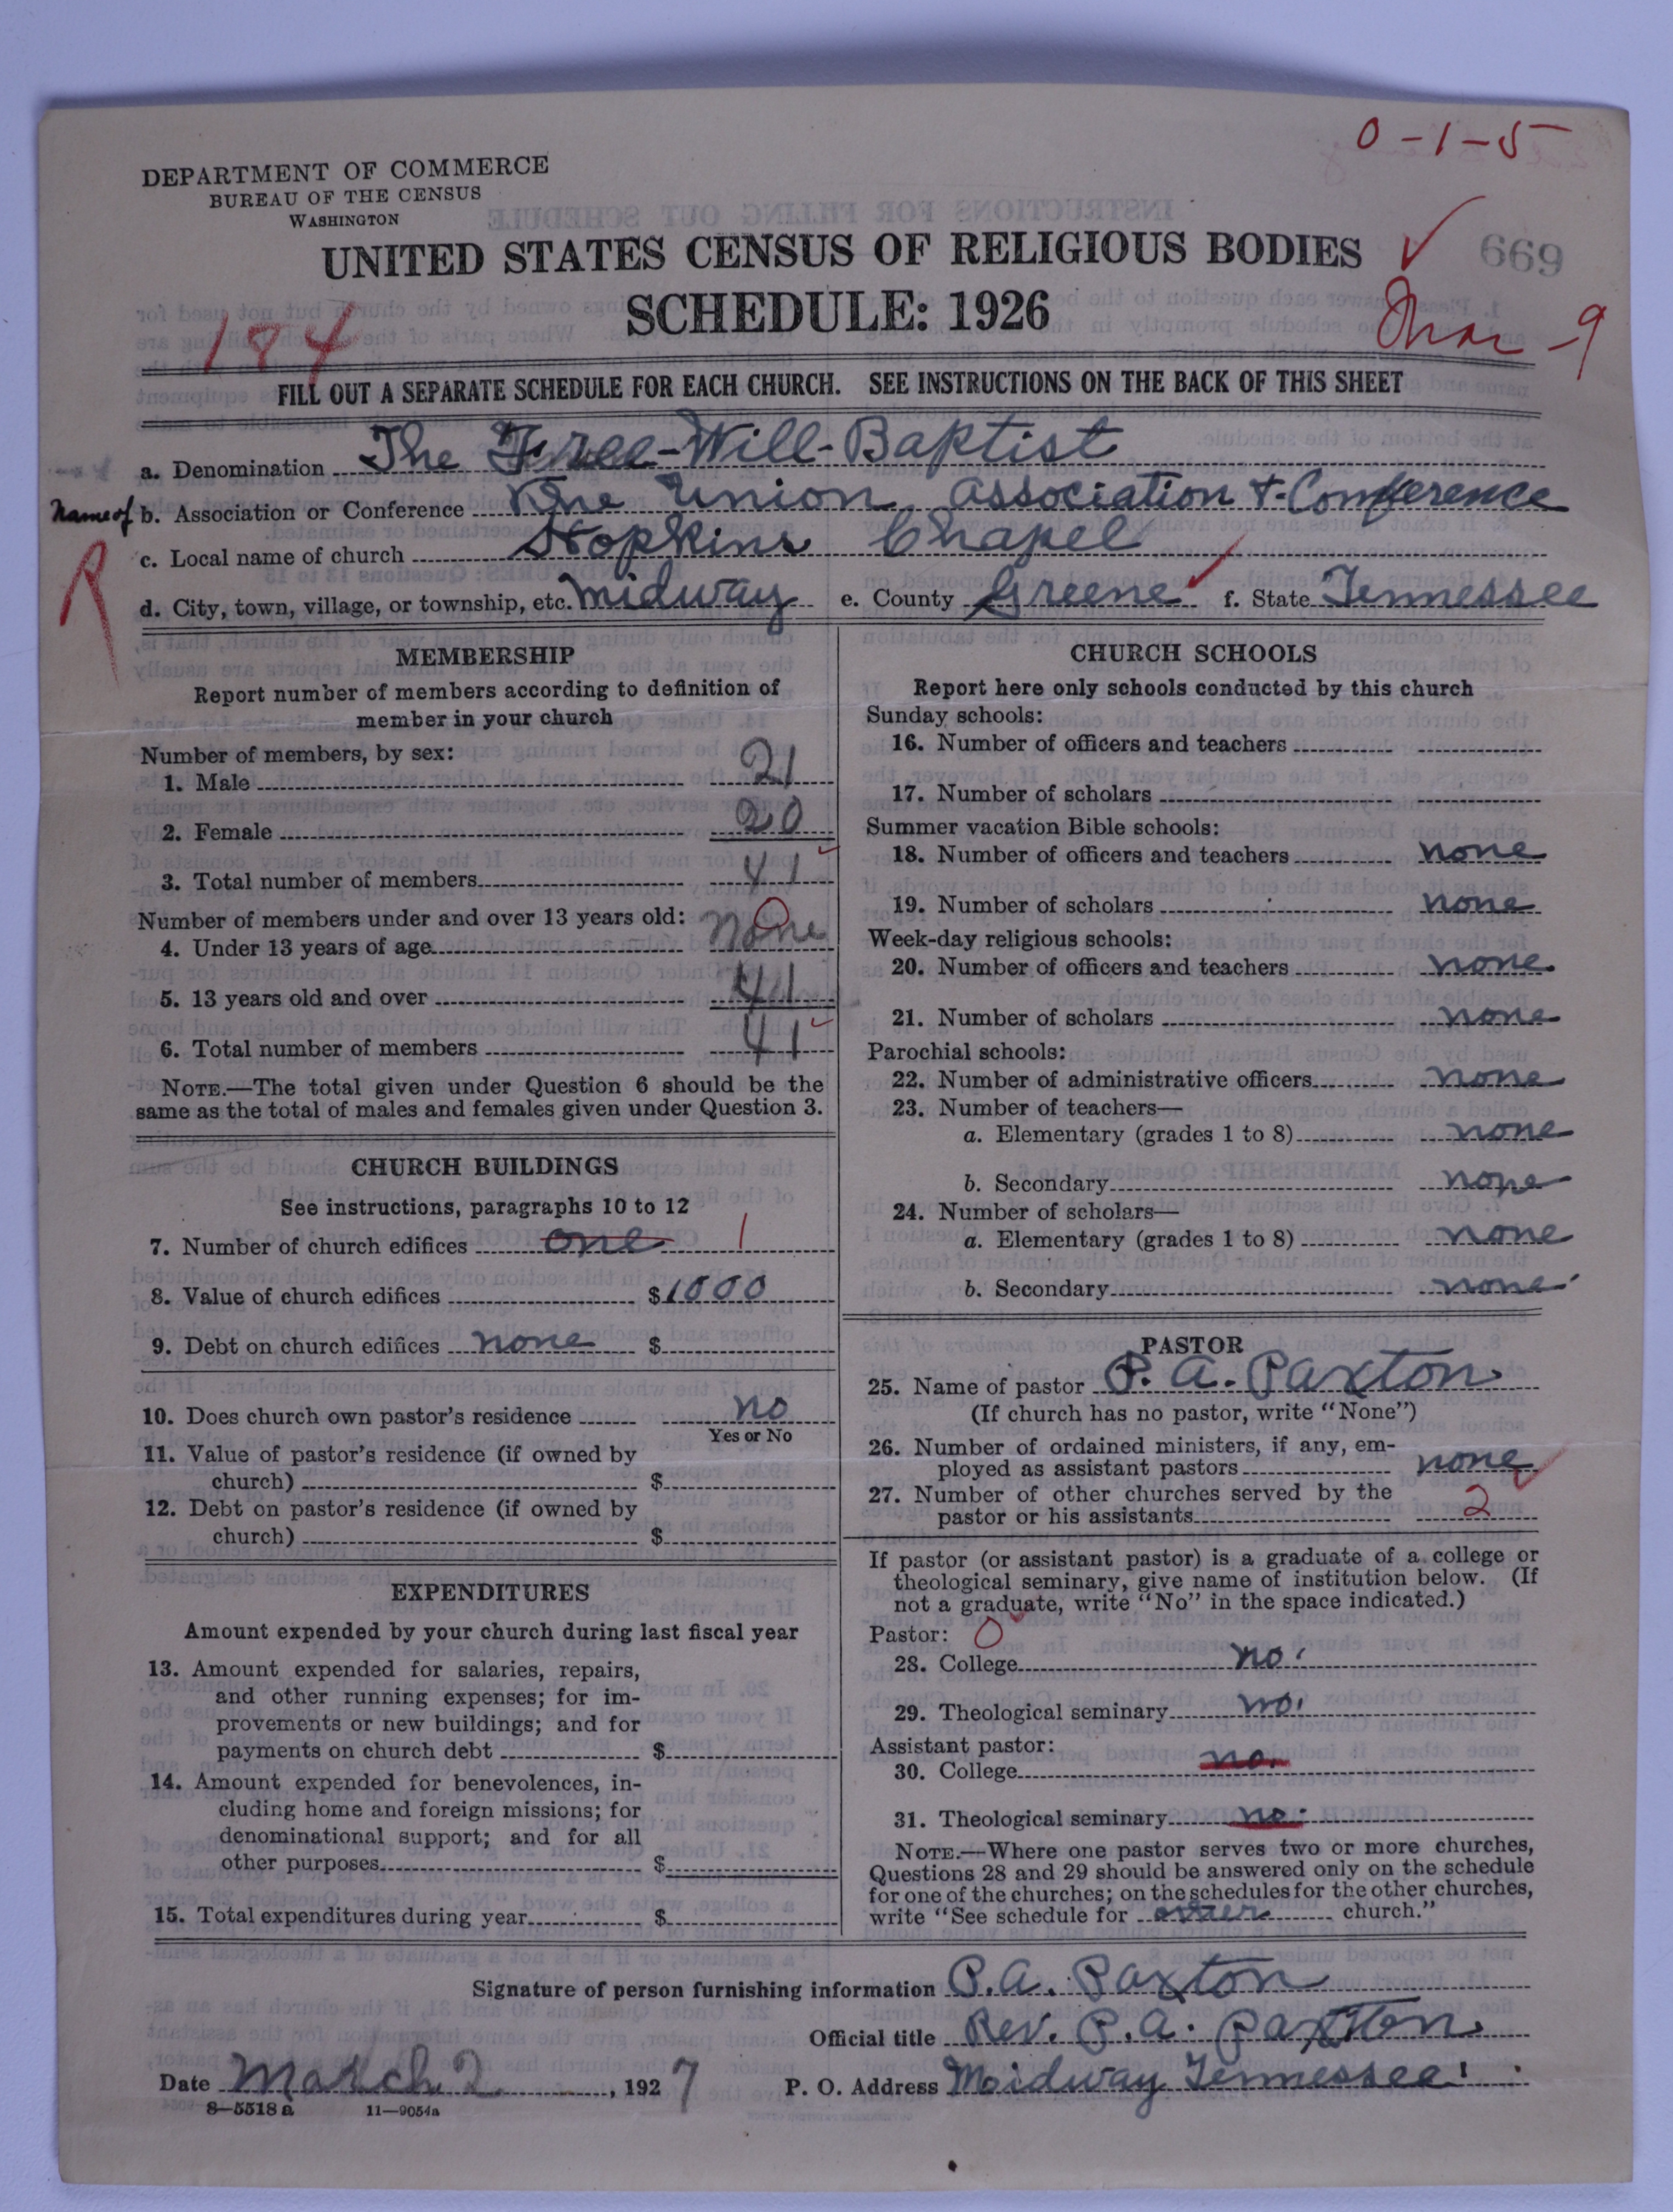 0-1-5
DEPARTMENT OF COMMERCE
BUREAU OF THE CENSUS
WASHINGTON
UNITED STATES CENSUS OF RELIGIOUS BODIES
669
SCHEDULE: 1926
184
Mar-9
FILL OUT A SEPARATE SCHEDULE FOR EACH CHURCH. SEE INSTRUCTIONS ON THE BACK OF THIS SHEET
a. Denomination The Free-Will-Baptist
Name of b. Association or Conference The Union Association & Conference
R
c. Local name of church Hopkins Chapel
d. City, town, village, or township, etc. Midway e. County Greene f. State Tennessee
MEMBERSHIP
Report number of members according to definition of
member in your church
Number of members, by sex:
1. Male 21
2. Female 20
3. Total number of members 41
Number of members under and over 13 years old:
4. Under 13 years of age none
5. 13 years old and over 41
6. Total number of members 41
NOTE.—The total given under Question 6 should be the
same as the total of males and females given under Question 3.
CHURCH BUILDINGS
See instructions, paragraphs 10 to 12
7. Number of church edifices one 1
8. Value of church edifices $1000
9. Debt on church edifices none $
10. Does church own pastor's residence no
Yes or No
11. Value of pastor's residence (if owned by
church) $
12. Debt on pastor's residence (if owned by
church) $
EXPENDITURES
Amount expended by your church during last fiscal year
13. Amount expended for salaries, repairs,
and other running expenses; for im-
provements or new buildings; and for
payments on church debt $
14. Amount expended for benevolences, in-
cluding home and foreign missions; for
denominational support; and for all
other purposes $
15. Total expenditures during year $
CHURCH SCHOOLS
Report here only schools conducted by this church
Sunday schools:
16. Number of officers and teachers
17. Number of scholars
Summer vacation Bible schools:
18. Number of officers and teachers none
19. Number of scholars none
Week-day religious schools:
20. Number of officers and teachers none
21. Number of scholars none
Parochial schools:
22. Number of administrative officers none
23. Number of teachers—
a. Elementary (grades 1 to 8) none
b. Secondary none
24. Number of scholars—
a. Elementary (grades 1 to 8) none
b. Secondary none
PASTOR
25. Name of pastor P. A. Paxton
(If church has no pastor, write "None")
26. Number of ordained ministers, if any, em-
ployed as assistant pastors none
27. Number of other churches served by the
pastor or his assistants 2
If pastor (or assistant pastor) is a graduate of a college or
theological seminary, give name of institution below. (If
not a graduate, write "No" in the space indicated.)
Pastor: 0
28. College no.
29. Theological seminary no.
Assistant pastor:
30. College no.
31. Theological seminary no.
NOTE.—Where one pastor serves two or more churches,
Questions 28 and 29 should be answered only on the schedule
for one of the churches; on the schedules for the other churches,
write "See schedule for church."
Signature of person furnishing information P.A. Paxton
Official title Rev. P.A. Paxton
Date March 2, 1927 P. O. Address Midway Tennessee
8-5518 a 11-9054a